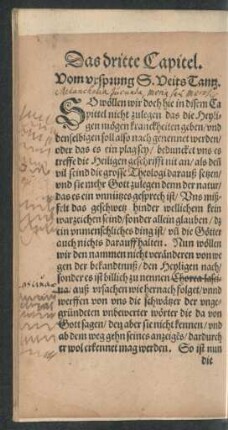 Das dritte Capitel.
Vom vrsprung S. Veits Tantz.
SO wöllen wir doch hie in disem Ca
pitel nicht zulegen das die Heyli-
gen mögen kranckheiten geben/vnd
denselbigen soll also nach genennet werden/
oder das es ein plag sey/ beduncket vns es
treffe die Heiligen geschrifft nit an/als deñ
vil seind die grosse Theologi darauß setzen/
vnd sie mehr Gott zulegen denn der natur/
das es ein vnnützes gesprech ist/ Vns miß-
felt das geschwetz hinder wellichem kein
warzeichen seind/sonder allein glauben/ dz
ein vnmenschliches ding ist/ vñ die Götter
auch nichts darauff halten. Nun wöllen
wir den nammen nicht veränderen von we
gen der bekandtnuß/ den Heyligen nach/
sonder es ist billich zu nennen Chorea lasci-
ua: auß vrsachen wie hernach folget/ vnnd
werffen von vns die schwätzer der vnge-
gründeten vnbewerter wörter die da von
Gott sagen/ den aber sie nicht kennen/ vnd
ab dem weg gehn seines anzeigēs/ dardurch
er wol erkennet mag werden. So ist nun
die